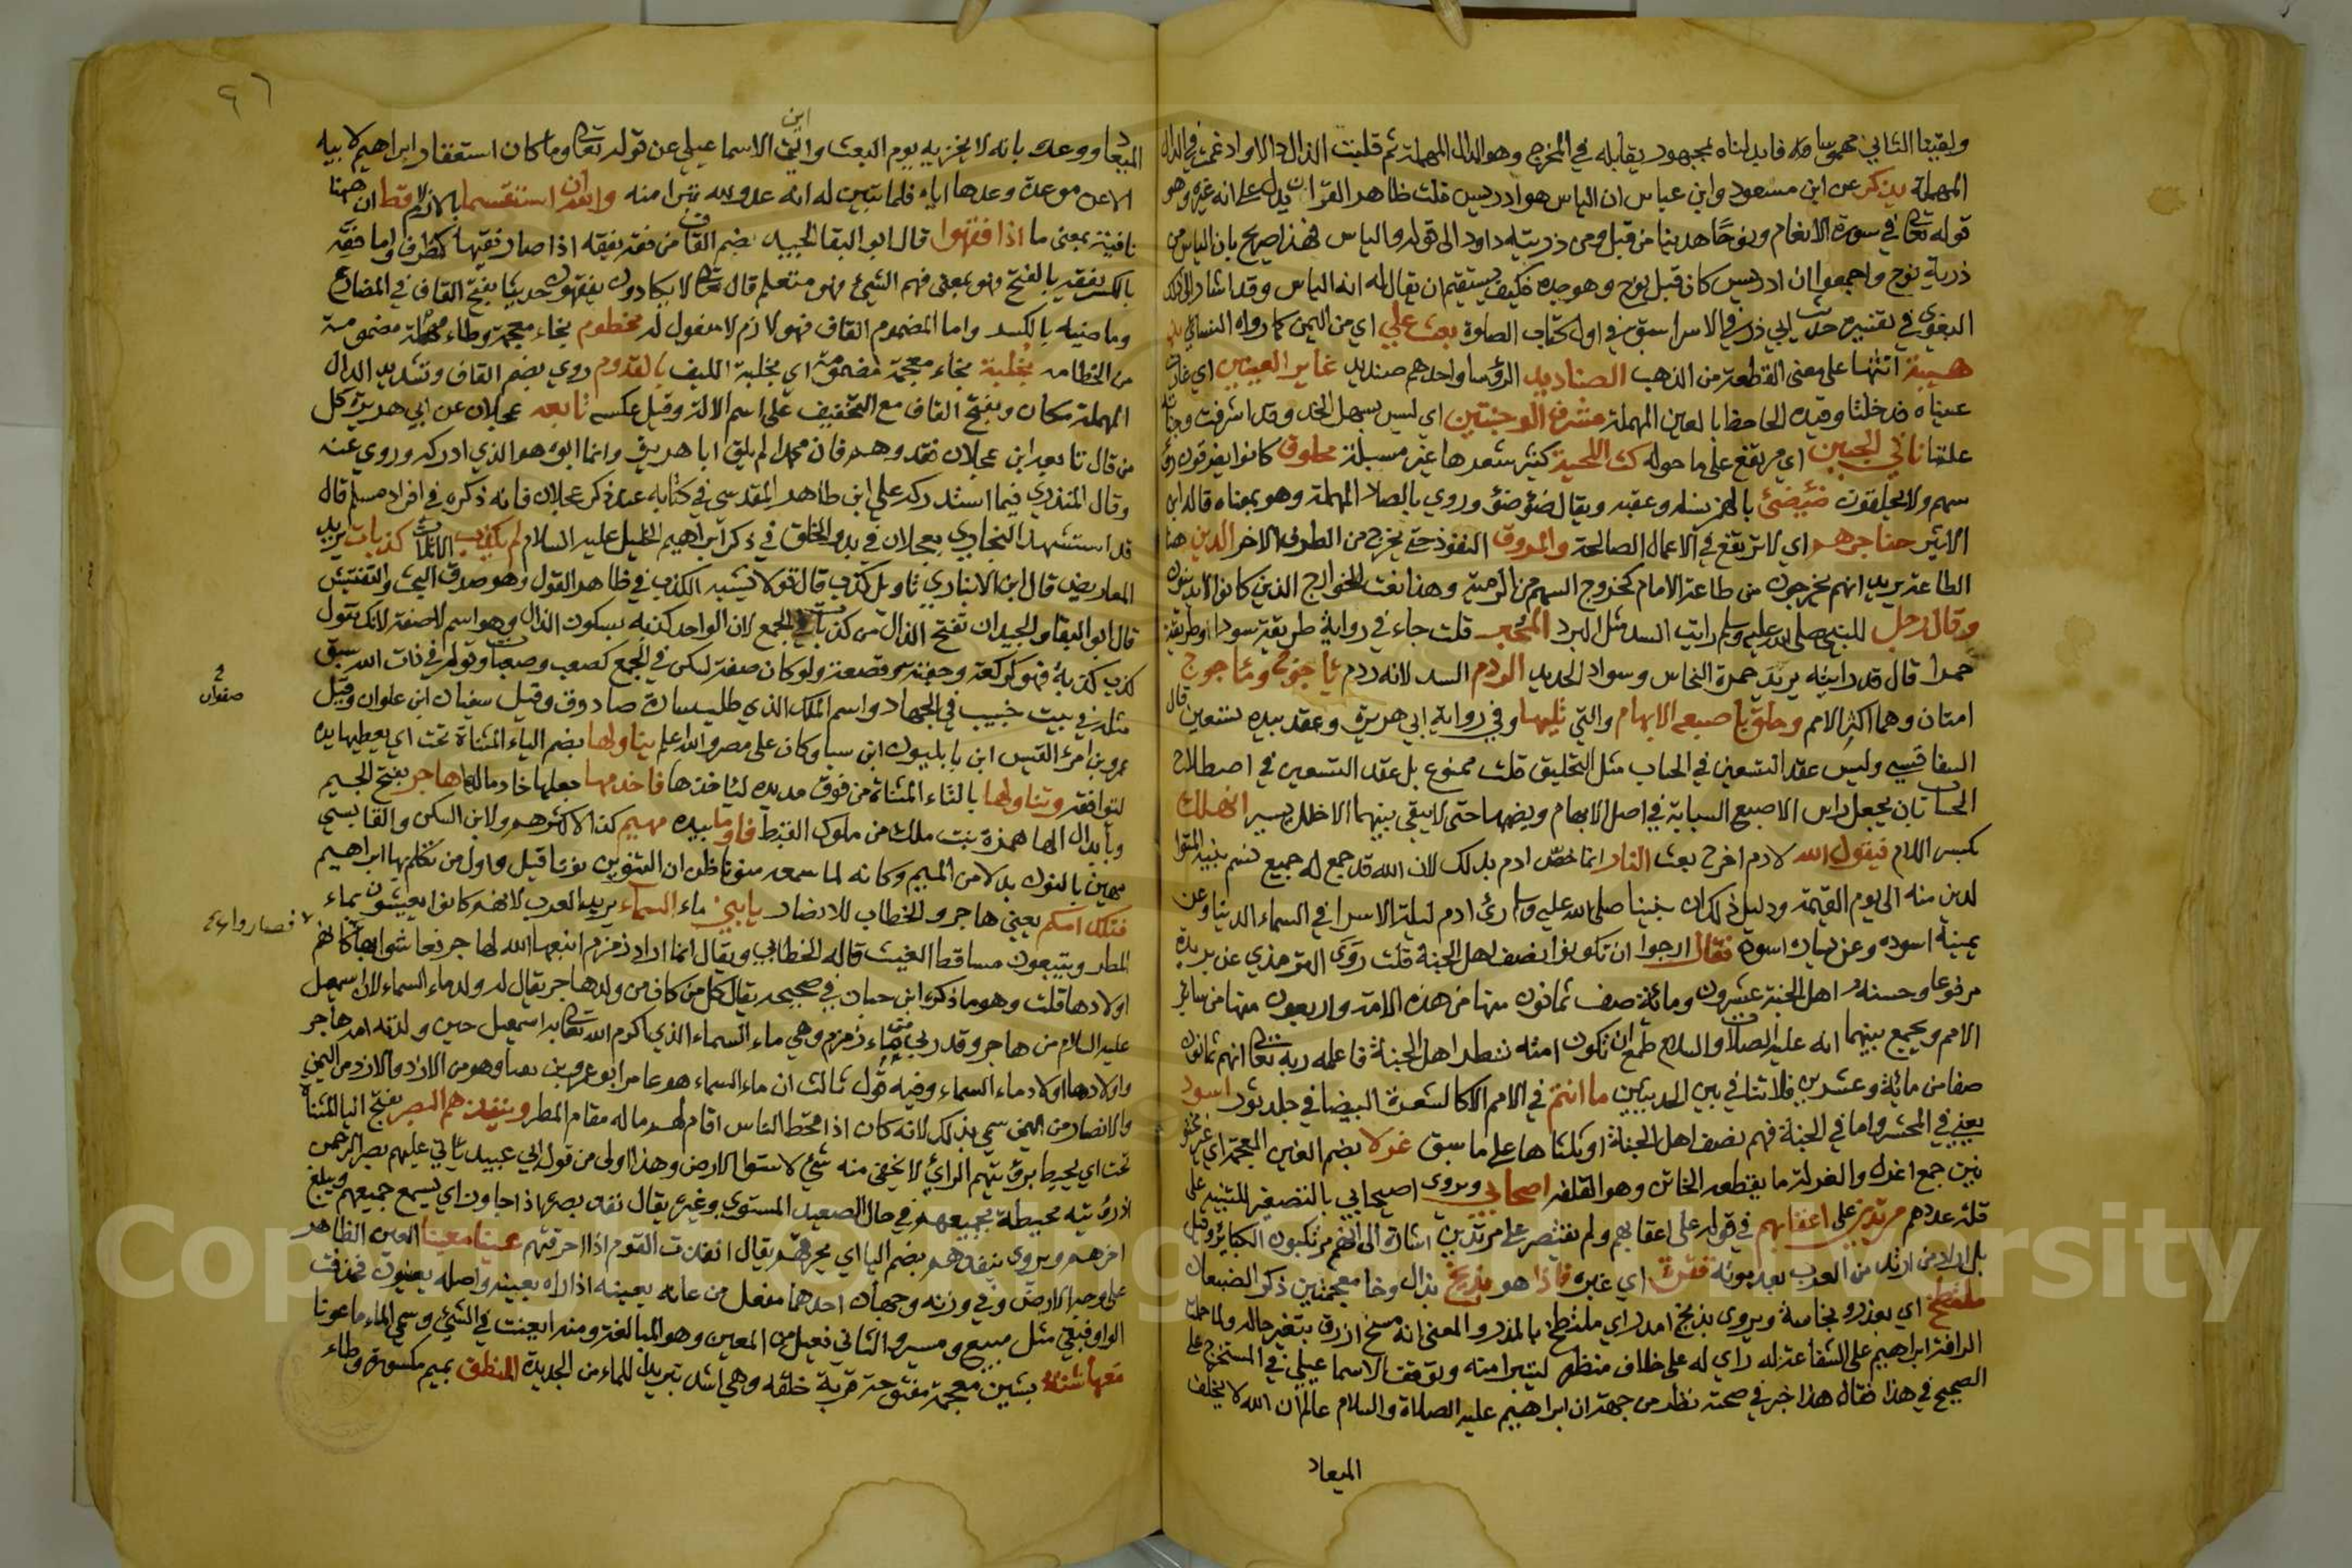 ولقينا الثاني مهموسا فابدلناه بمجهور يقابله في المخرج وهو الدال المهملة ثم قلبت الذال دالا وادغمت في الدال
المهملة يذكر عن ابن مسعود وابن عباس ان الياس هو ادريس قلت ظاهر القران يدل على انه غيره وهو
قوله تعالى في سورة الانعام ونوحا هدينا من قبل ومن ذريته داود الى قوله والياس فهذا صريح بان الياس من
ذرية نوح واجمعوا ان ادريس كان قبل نوح وهو جده فكيف يستقيم ان يقال له انه الياس وقد اشار الى ذلك
البغوي في تفسيره حديث ابي ذر في الاسرا سبق في اول كتاب الصلوة بعث علي اي من اليمن كما رواه النسائي
انثها على معنى القطعة من الذهب الصناديد الرؤسا واحدهم صنديد غاير العينين اي غارت
عيناه فدخلتا وقيده الحافظ بالعين المهملة مشرف الوجنتين اي ليس بسهل الخد وقد اشرفت وجنتاه
علتا ناتي الجبين اي مرتفع على ما حوله كث اللحية كثير شعرها غير مسبلة محلوق كانوا يفرقون
سهم ولا يحلقون ضئضئ بالهمز نسله وعقبه ويقال ضؤضؤ وروي بالصاد المهملة وهو بمعناه قاله ابن
الاثير حناجرهم اي لا ترتفع في الاعمال الصالحة والمروق النفوذ حتى يخرج من الطرف الاخر الدين هنا
الطاعة يريد انهم يخرجون من طاعة الامام كخروج السهم من الرمية وهذا نعت الخوارج الذين كانوا لا يدينون
وقال رجل للنبي صلى الله عليه وسلم رايت السد مثل البرد المحبر قلت جاء في رواية طريقة سودا وطريقة
حمرا قال قد رايته يريد حمرة النحاس وسواد الحديد الردم السد لانه ردم ياجوج وماجوج
امتان وهما اكثر الامم وحلق باصبعه الابهام والتي تليها وفي رواية ابي هريرة وعقد بيده تسعين قال
السفاقسي وليس عقد التسعين في الحساب مثل التحليق قلت ممنوع بل عقد التسعين في اصطلاح
الحساب ان يجعل راس الاصبع السبابة في اصل الابهام ويضمها حتى لا يبقى بينهما الا خلل يسير انهلك
بكسر اللام فيقول الله لادم اخرج بعث النار انما خص ادم بذلك لان الله قد جمع له جميع نسم بنيه
لدن منه الى يوم القيمة ودليل ذلك ان نبينا صلى الله عليه وسلم رئ ادم ليلة الاسرا في السماء الدنيا وعن
يمينه اسوده وعن يساره اسودة فقال ارجوا ان تكونوا نصف اهل الجنة قلت روى الترمذي عن بريدة
مرفوعا وحسنه اهل الجنة عشرون ومائة صف ثمانون منها من هذه الامة واربعون منها من ساير
الامم ويجمع بينهما انه عليه الصلاة والسلام طمع ان تكون امته شطر اهل الجنة فاعلمه ربه تعالى انهم ثمانون
صفا من مائة وعشرين فلا تنافي بين الحديثين ما انتم في الامم الا كالشعرة البيضا في جلد ثور اسود
يعني في المحشر واما في الجنة فهم نصف اهل الجنة او ثلثاها على ما سبق غرلا بضم الغين المعجمة اي غير مختو
نين جمع اغرل والغرلة ما يقطعه الخاتن وهو القلفة اصحابي ويروى اصيحابي بالتصغير للتنبيه على
قلة عددهم مرتدين على اعقابهم في قوله على اعقابهم ولم يقتصر على مرتدين اشارة الى انهم مرتكبون الكبائر وقيل
بل اراد من ارتد من العرب بعد موته قترة اي غبرة فاذا هو بذيخ بذال وخا معجمتين ذكر الضبعان
ملتطخ اي بعذرة ونجاسة ويروى بذيخ امدر اي ملتطخ بالمدر والمعنى انه مسخ ازرق بتغير حاله ولما حملت
الرافة ابراهيم على الشفاعة له راي له على خلاف منظره ليتبرا منه وتوقف الاسماعيلي في المستخرج على
الصحيح في هذا فقال هذا خبر في صحته نظر من جهة ان ابراهيم عليه الصلاة والسلام عالم ان الله لا يخلف
الميعاد
٩٦
ابن
الميعاد ووعده بانه لا يخزيه يوم البعث الاسماعيلي عن قوله تعالى وما كان استغفار ابراهيم لابيه
الا عن موعدة وعدها اياه فلما تبين له انه عدو لله تبرا منه والله ان استقسما بالازلام قط ان هنا
نافية بمعنى ما اذا فقهوا قال ابو البقا الجيد بضم القاف من فقه يفقه اذا صار فقيها كظرف واما فقه
بالكسر يفقه بالفتح فهو بمعنى فهم الشيء فهو متعلم قال تعالى لا يكادون يفقهون حديثا بفتح القاف في المضارع
وماضيه بالكسر واما المضموم القاف فهو لازم لا مفعول له مخطوم بخاء معجمة وطاء مهملة مضمومة
من الخطام بخلبة بخاء معجمة مضمومة اي بخلبة الليف بالقدوم روي بضم القاف وتشديد الدال
المهملة مكان وبفتح القاف مع التخفيف على اسم الالة وقيل عكسه تابعه عجلان عن ابي هريرة كل
من قال تابعه ابن عجلان فقد وهم فان محمدا لم يلق ابا هريرة وانما ابوه هو الذي ادركه وروي عنه
وقال المنذري فيما استدركه على ابن طاهر المقدسي في كتابه عند ذكر عجلان فانه ذكره في افراد مسلم قال
قد استشهد البخاري بعجلان في بدو الخلق في ذكر ابراهيم الخليل عليه السلام لم يكذب الا ثلاث كذبات يريد
المعاريض قال ابن الانباري تاويل كذب قال قولا يشبه الكذب في ظاهر القول وهو صدق عند البحث والتفتيش
قال ابو البقا والجيد ان تفتح الذال من كذبات في الجمع لان الواحد كذبه بسكون الذال وهو اسم لا صفة لانك تقول
كذب كذبة فهو كركعة وجفنة وقصعة ولو كان صفة لسكن في الجمع كصعب وصعبات وقولهم في ذات الله سبق
مثله في بيت خبيب في الجهاد واسم الملك الذي طلب سارة صادوف وقيل سفيان ابن علوان وقيل
2
صفوان
عمرو بن امرئ القيس ابن بابليون ابن سبا وكان على مصر والله اعلم يناولها بضم الياء المثناة تحت اي يعطيها يده
لتوافقه وتناولها بالتاء المثناة من فوق مد يده لياخذها فاخدمها جعلها خادما لها هاجر بفتح الجيم
وبابدال الها همزة بنت ملك من ملوك القبط فاوما بيده مهيم كذا لاكثرهم ولابن السكن والقابسي
مهين بالنون بدلا من الميم وكانه لما سمعه منونا ظن ان التنوين نونا قيل واول من تكلم بها ابراهيم
فتلك امكم يعني هاجر والخطاب للانصار يا بني ماء السماء يريد العرب لانهم كانوا يعيشون بماء
المطر ويتبعون مساقط الغيث قاله الخطابي ويقال انما اراد زمزم انبعها الله لها جر فعاشوا بها كانهم
فصاروا
اولادها قلت وهو ما ذكره ابن حبان في صحيحه يقال كل من كان من ولد هاجر يقال له ولد ماء السماء لان اسمعيل
عليه السلام من هاجر وقد ربي بماء زمزم وهي ماء السماء الذي اكرم الله تعالى به اسمعيل حين ولدته امه هاجر
واولادها اولاد ماء السماء وفيه قول ثالث ان ماء السماء هو عامر ابو عمرو بن وهو من الازد والازد من اليمن
والانصار من اليمن سمي بذلك لانه كان اذا قحط الناس اقام لهم ماله مقام المطر وينفذهم البصر بفتح اليا المثناة
تحت اي يحيط برؤيتهم الرائي لا يخفى منه شيء لاستوا الارض وهذا اولى من قول ابي عبيد ياتي عليهم بصر الرحمن
اذ رؤيته محيطة بجميعهم في حال الصعيد المستوي وغيره يقال نفذ بصره اذا جاوز اي يسمع جميعهم ويبلغ
اخرهم ويروى ينفذهم بضم اليا اي يخرقهم يقال انفذت القوم اذا اخرقتهم عينا معينا العين الظاهر
على وجه الارض وفي وزنه وجهان احدهما مفعل من عانه يعينه اذا راه بعينه واصله معيون فحذفت
الواو فبقي مثل مبيع ومسير والثاني فعيل من المعين وهو المبالغة ومنه امعنت في الشيء وسمي الماء ماعونا
معها شنة بشين معجمة مفتوحة قربة خلقة وهي اشد تبريدا للماء من الجديدة المنطق بميم مكسورة وطاء